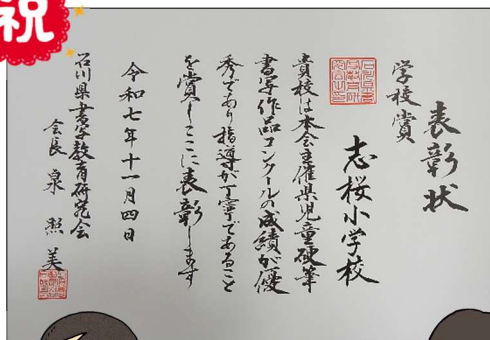 祝
表彰状
学校賞
志桜小学校
貴校は本会主催県児童硬筆
書写作品コンクールの成績が優
秀であり指導が丁寧であること
を賞しここに表彰します
令和七年十一月四日
石川県書写教育研究会
会長 泉 熙美